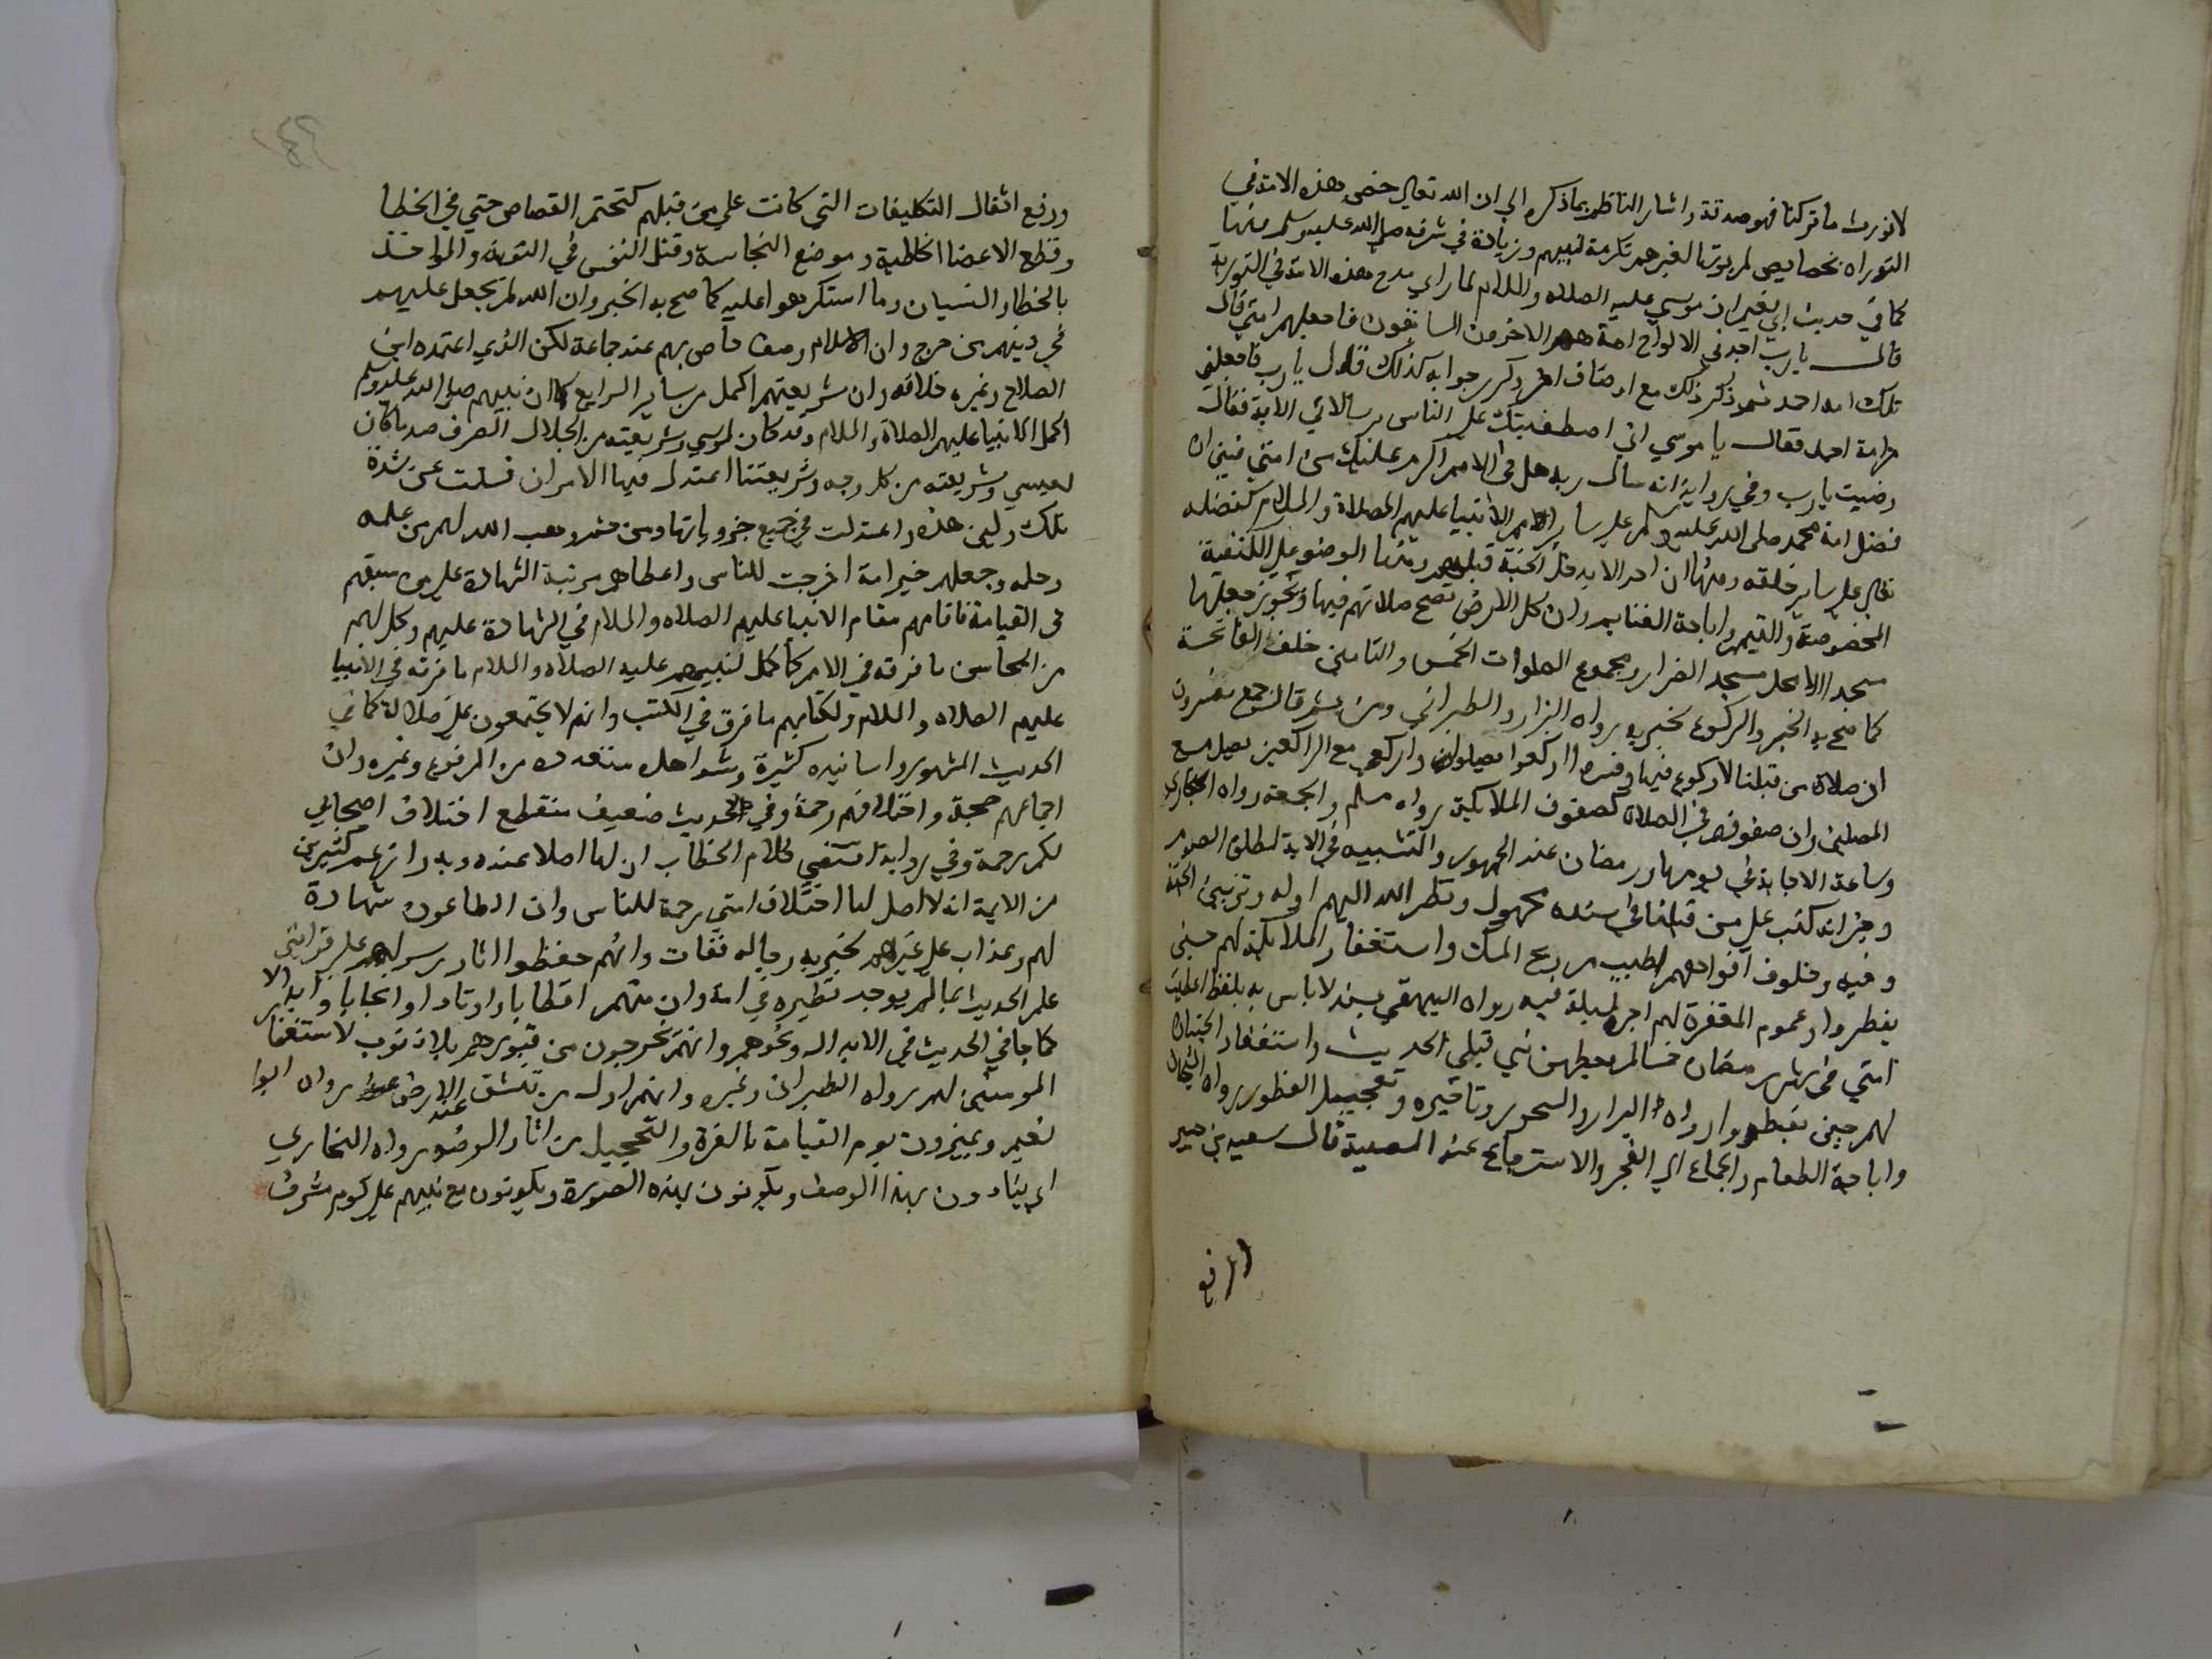 لا نورث ما تركنا فهو صدقة واشار الناظم بما ذكره الي ان الله تعالي خص هذه الامة في
التوراه بخصايص لم يوتها لغيرهم تكرمة لنبيهم وزيادة في شرفه صلي الله عليه وسلم منها
كما في حديث ابي نعيم ان موسي عليه الصلاه والسلام لما راي مدح هذه الامة في التورية
قال يا رب اجد في الالواح امة هم الاخرون السابقون فاجعلهم امتي قال
تلك امة احمد ثم ذكر ذلك مع اوصاف اخر وكرر جوابه كذلك قال يا رب فاجعلني
من امة احمد فقال يا موسي اني اصطفيتك علي الناس برسالاتي الاية فقال
رضيت يا رب وفي رواية انه سال ربه هل في الامم اكرم عليك من امتي فبين ان
فضل امة محمد صلي الله عليه وسلم علي ساير الامم الانبيا عليهم الصلاة والسلام كفضله
تعالي علي ساير خلقه ومنها ان احدا لا يدخل الجنة قبلهم ومنها الوضو علي الكيفية
المخصوصة والتيمم واباحة الغنايم وان كل الارض تصح صلاتهم فيها ويجوز جعلها
مسجد الالاجل مسجد الضرار ومجموع الصلوات الخمس والتامين خلف الفاتحة
كما صح به الخبر والركوع لخبر به رواه البزار والطبراني ومن ثم قال جمع مفسرون
ان صلاة من قبلنا لا ركوع فيها وفسروا اركعوا بصلوا واركعي مع الراكعين بصلي مع
المصلين وان صفوفهم في الصلاة كصفوف الملايكة رواه مسلم والجمعة رواه البخاري
وساعة الاجابة في يومها ورمضان عند الجمهور والتشبيه في الاية لمطلق الصوم
وخبر انه كتب علي من قبلنا في سنده مجهول ونظر الله اليهم اوله وتزيين الجنة
وفيه وخلوف افواههم اطيب من ريح المسك واستغفار الملايكة لهم حين
يفطروا وعموم المغفرة لهم اخر ليلة فيه رواه البيهقي بسند لا باس به بلفظ اعطيت
امتي في شهر رمضان خمسا لم يعطهن نبي قبلي الحديث واستغفار الحيتان
لهم حين يفطروا رواه البزار والسحور وتاخيره وتعجيل الفطور رواه الشيخان
واباحة الطعام والجماع الي الفجر والاسترجاع عند المصيبة قال سعيد بن جبير
ورفع اثقال التكليفات التي كانت علي من قبلهم كتحتم القصاص حتي في الخطا
وقطع الاعضا الخاطية وموضع النجاسة وقتل النفس في التوبة والمواخذة
بالخطا والنسيان وما استكرهوا عليه كما صح به الخبر وان الله لم يجعل عليهم
في دينهم من حرج وان الاسلام وصف خاص بهم عند جماعة لكن الذي اعتمده ابن
الصلاح وغيره خلافه وان شريعتهم اكمل من ساير الشرايع كما ان نبيهم صلي الله عليه وسلم
اكمل الانبيا عليهم الصلاة والسلام وقد كان لموسي وشريعته من الجلال الصرف ضد ما كان
لعيسي وشريعته من كل وجه وشريعتنا اعتدل فيها الامران فسلمت عن شدة
تلك ولين هذه واعتدلت في جميع جزوياتها ومن ثم وهب الله لهم من علمه
وحلمه وجعلهم خير امة اخرجت للناس واعطاهم مرتبة الشهادة علي من سبقهم
في القيامة فاقامهم مقام الانبيا عليهم الصلاه والسلام في الشهادة عليهم وكمل لهم
من المحاسن ما فرقه في الامم كما كمل لنبيهم عليه الصلاه والسلام ما فرقه في الانبيا
عليهم الصلاه والسلام ولكتابهم ما فرق في الكتب وانهم لا يجتمعون علي ضلالة كما في
الحديث المشهور واسانيده كثيرة وشواهده متعددة من المرفوع وغيره وان
اجماعهم حجة واختلافهم رحمة وفي حديث ضعيف منقطع اختلاف اصحابي
لكم رحمة وفي رواية امتي كلام الخطابي ان لها اصلا عنده وبه رد زعم كثيرين
من الايمة انه لا اصل لها اختلاف امتي رحمة للناس وان الطاعون شهادة
لهم وعذاب علي غيرهم لخبر به رجاله ثقات وانهم حفظوا اثار رسولهم علي قوانين
علم الحديث بما لم يوجد نظيره في امة وان منهم اقطابا واوتادا وانجابا وابدالا
كما جا في الحديث في الابدال ونحوهم وانهم يخرجون من قبورهم بلا ذنوب لاستغفار
المومنين لهم رواه الطبراني وغيره وانهم اول من تنشق عنه الارض رواه ابوا
نعيم ويميزون يوم القيامة بالغرة والتحجيل من اثار الوضوء رواه البخاري
اي ينادون بهذا الوصف ويكونون بهذه الصورة ويكونون مع نبيهم علي كوم مشرف